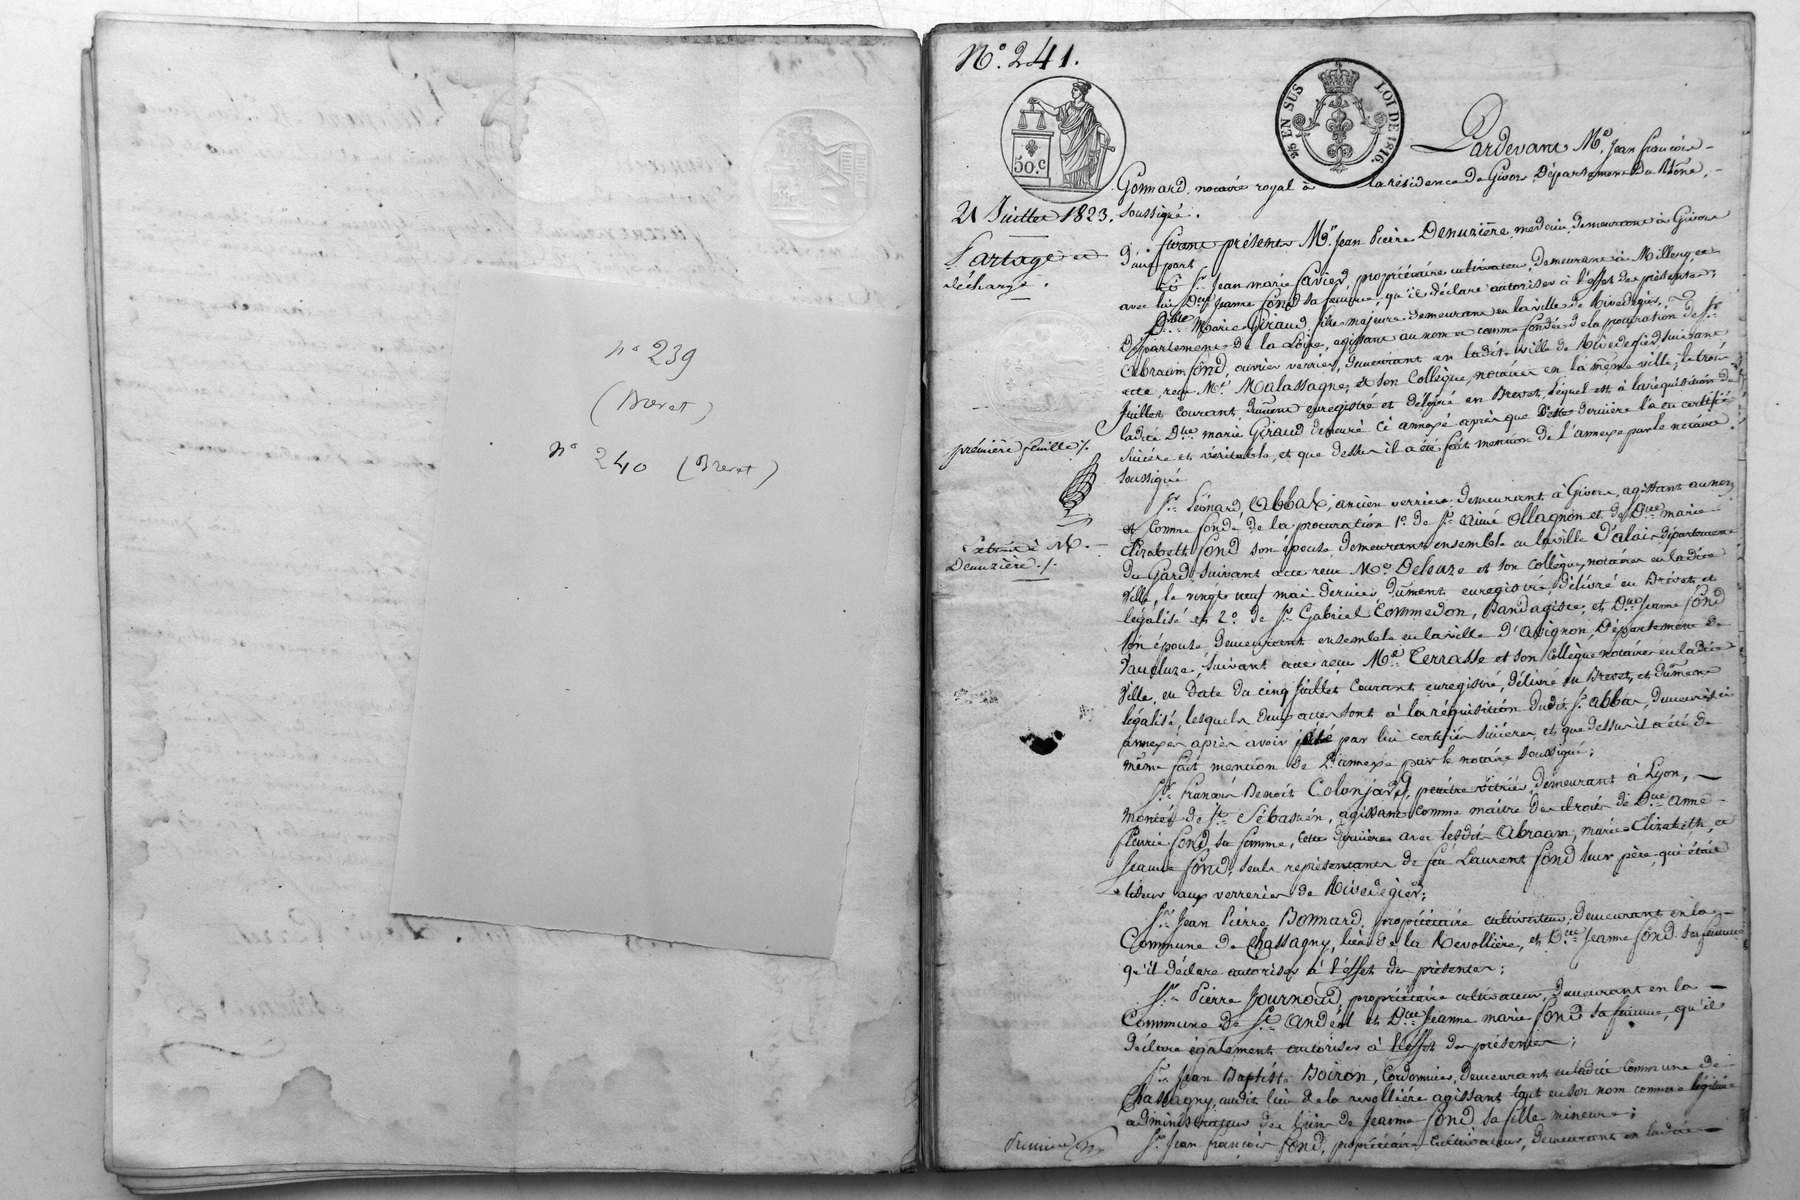 n° 239
(Brevet)
n° 240 (Brevet)
N°. 241.
50.c
2/5 EN SUS LOI DE 1816.
21 Juillet 1823.
Partage et
décharge.
première feuille /.
Extrait à M.
Denuzière /.
Pardevant Me. Jean François
Gonnard, notaire royal à la résidence de Givors, Département du Rhône,
soussigné.
furent présents Mr. Jean Pierre Denuzière, médecin, demeurant à Givors
d'une part
Et Sr. Jean marie Favier, propriétaire cultivateur, demeurant à Millery, et
avec lui Dme. Jeanne Fond sa femme, qu'il déclare autoriser à l'effet des présentes;
Dlle. Marie Giraud, fille majeure demeurant en la ville de Rivedegier,
Département de la Loire, agissant au nom et comme fondée de la procuration de Sr.
Abraam Fond, ouvrier verrier, demeurant en ladite ville de Rivedegier, suivant
acte reçu Me. Malassagne, et son Collègue, notaires en la même ville, le trois
Juillet courant, dûment enregistré et délivré en Brevet, lequel est à la réquisition de
ladite Dlle. marie Giraud demeuré ci annexé après que cette dernière l'a eu certifié
sincère et véritable, et que dessus il a été fait mention de l'annexe par le notaire
soussigné
Sr. Léonard Abbat, ancien verrier demeurant à Givors, agissant au nom
et comme fondé de la procuration 1° de Sr. Aimé Ollagnon et de Dme. marie
Elizabeth Fond son épouse, demeurant ensemble en la ville d'alais département
du Gard, suivant acte reçu Me. Deleuze et son Collègue, notaires en ladite
ville, le vingt neuf mai dernier dûment enregistré, délivré en Brevet, et
légalisé et 2° de Sr. Gabriel Commedon, Bandagiste, et Dme. Jeanne Fond
son épouse demeurant ensemble en la ville d'Avignon, Département de
Vaucluse, suivant acte reçu Me. Terrasse et son Collègue notaires en ladite
Ville, en date du cinq Juillet courant enregistré, délivré en Brevet, et dûment
légalisé, lesquels deux actes sont à la réquisition dudit Sr. abbat, demeurés ci
annexés après avoir été par lui certifiés sincères, et que dessus il a été de
même fait mention de l'annexe par le notaire soussigné;
Sr. françois Benoit Colonjard, peintre vitrier, demeurant à Lyon,
montée de St. Sébastien, agissant comme maitre des droits de Dme. anne
fleurie Fond, sa femme, cette dernière avec lesdits Abraam, marie Elizabeth, et
Jeanne Fond, seuls représentants de feu Laurent Fond leur père, qui était
tiseur aux verreries de Rivedegier;
Sr. Jean Pierre Bonnard, propriétaire cultivateur, demeurant en la
Commune de Chassagny, lieu de la Revollière, et Dme. Jeanne Fond sa femme
qu'il déclare autoriser à l'effet des présentes;
Sr. Pierre Journoud, propriétaire cultivateur, demeurant en la
Commune de St. andéol et Dme. Jeanne marie Fond sa femme, qu'il
déclare également autoriser à l'effet des présentes;
Sr. Jean Baptiste Boiron, Cordonnier, demeurant en ladite commune de
Chassagny, audit lieu de la revollière agissant tant en son nom comme légitime
administrateur des biens de Jeanne Fond sa fille mineure;
Sr. Jean françois Fond, propriétaire cultivateur, demeurant en ladite